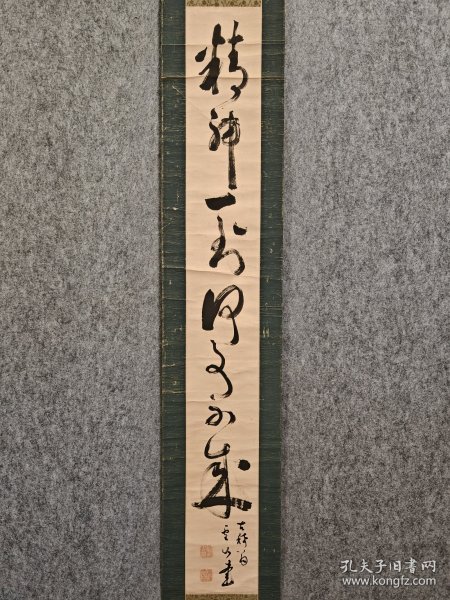 精神一到何事不成
孔夫子旧书网
www.kongfz.com